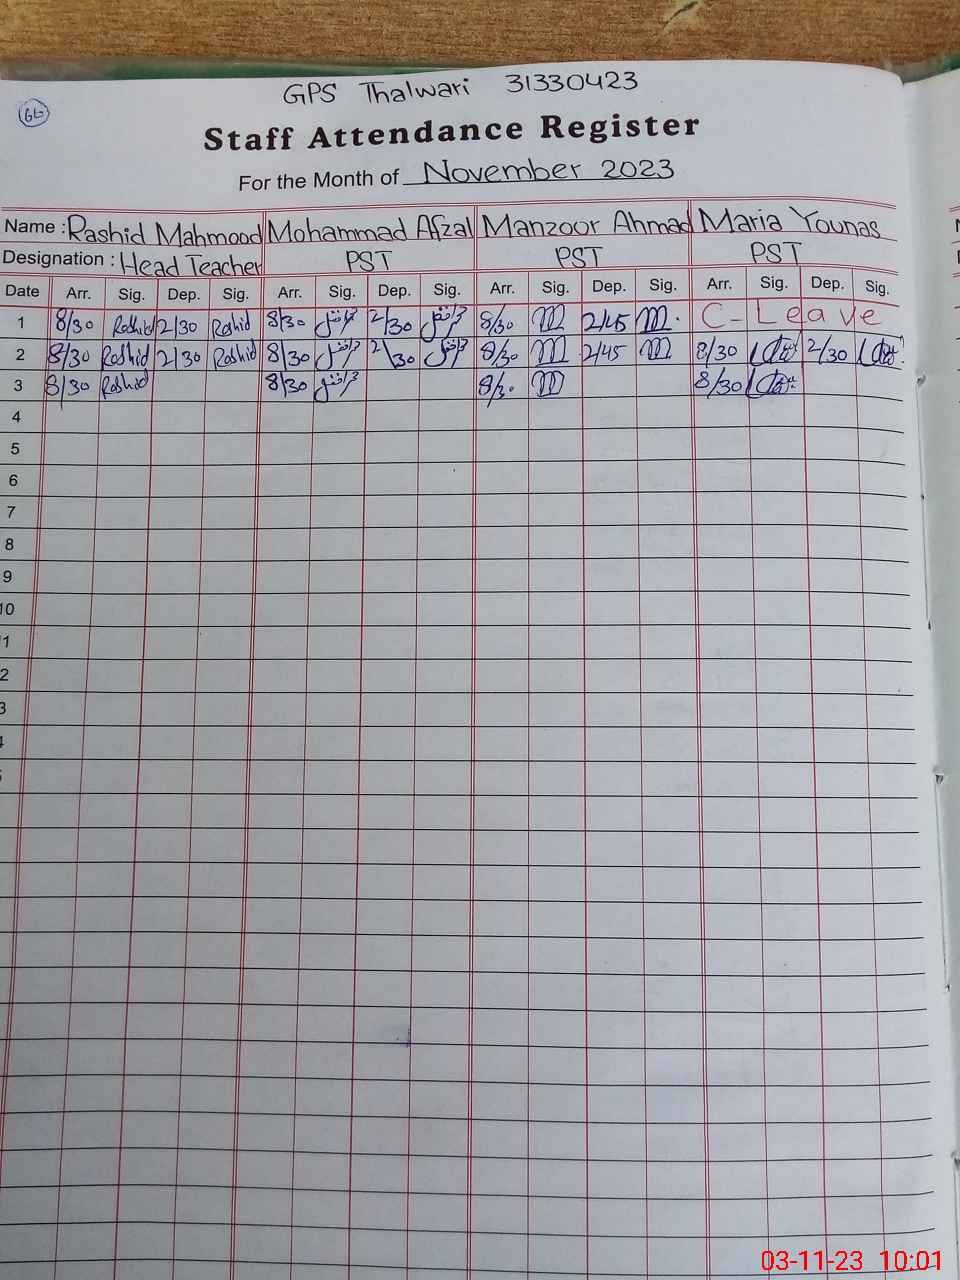 GPS Thalwari 31330423
Staff Attendance Register
For the Month of November 2023
Name : Rashid Mahmood Mohammad Afzal Manzoor Ahmad Maria Younas
Designation : Head Teacher PST PST PST
Date Arr. Sig. Dep. Sig. Arr. Sig. Dep. Sig. Arr. Sig. Dep. Sig. Arr. Sig. Dep. Sig.
1 8/30 Rashid 2/30 Rashid 8/30 2/30 8/30 2/45 C-Leave
2 8/30 Rashid 2/30 Rashid 8/30 2/30 8/30 2/45 8/30 2/30
3 8/30 Rashid 8/30 8/30
4
5
6
7
8
9
10
03-11-23 10:01